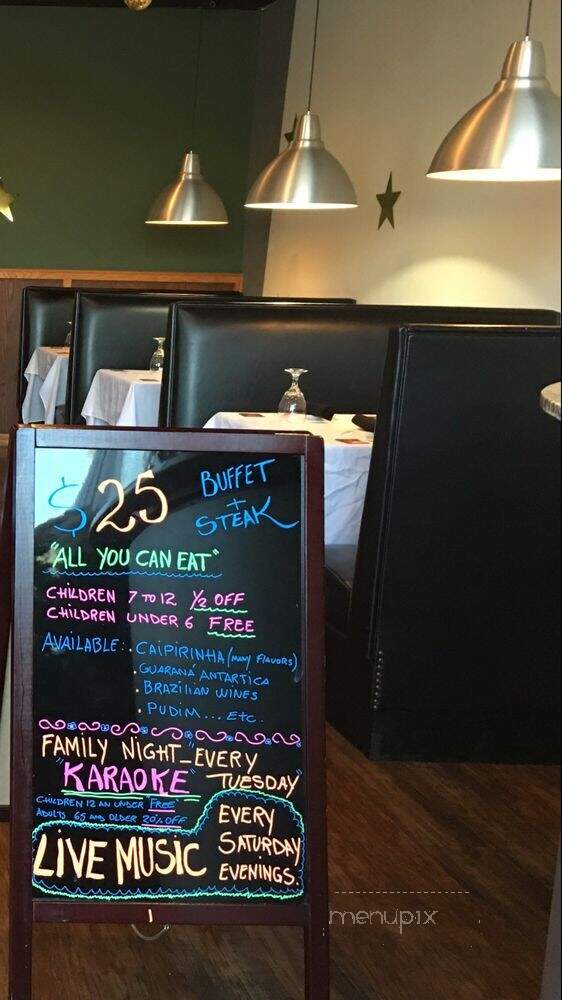 $25 BUFFET
+
STEAK
"ALL YOU CAN EAT"
CHILDREN 7 TO 12 1/2 OFF
CHILDREN UNDER 6 FREE
AVAILABLE: • CAIPIRINHA (MANY FLAVORS)
• GUARANÁ ANTARTICA
• BRAZILIAN WINES
• PUDIM... ETC.
FAMILY NIGHT_"EVERY
TUESDAY"
"KARAOKE"
CHILDREN 12 AN UNDER FREE
ADULTS 65 AND OLDER 20% OFF
LIVE MUSIC EVERY
SATURDAY
EVENINGS.
menupix